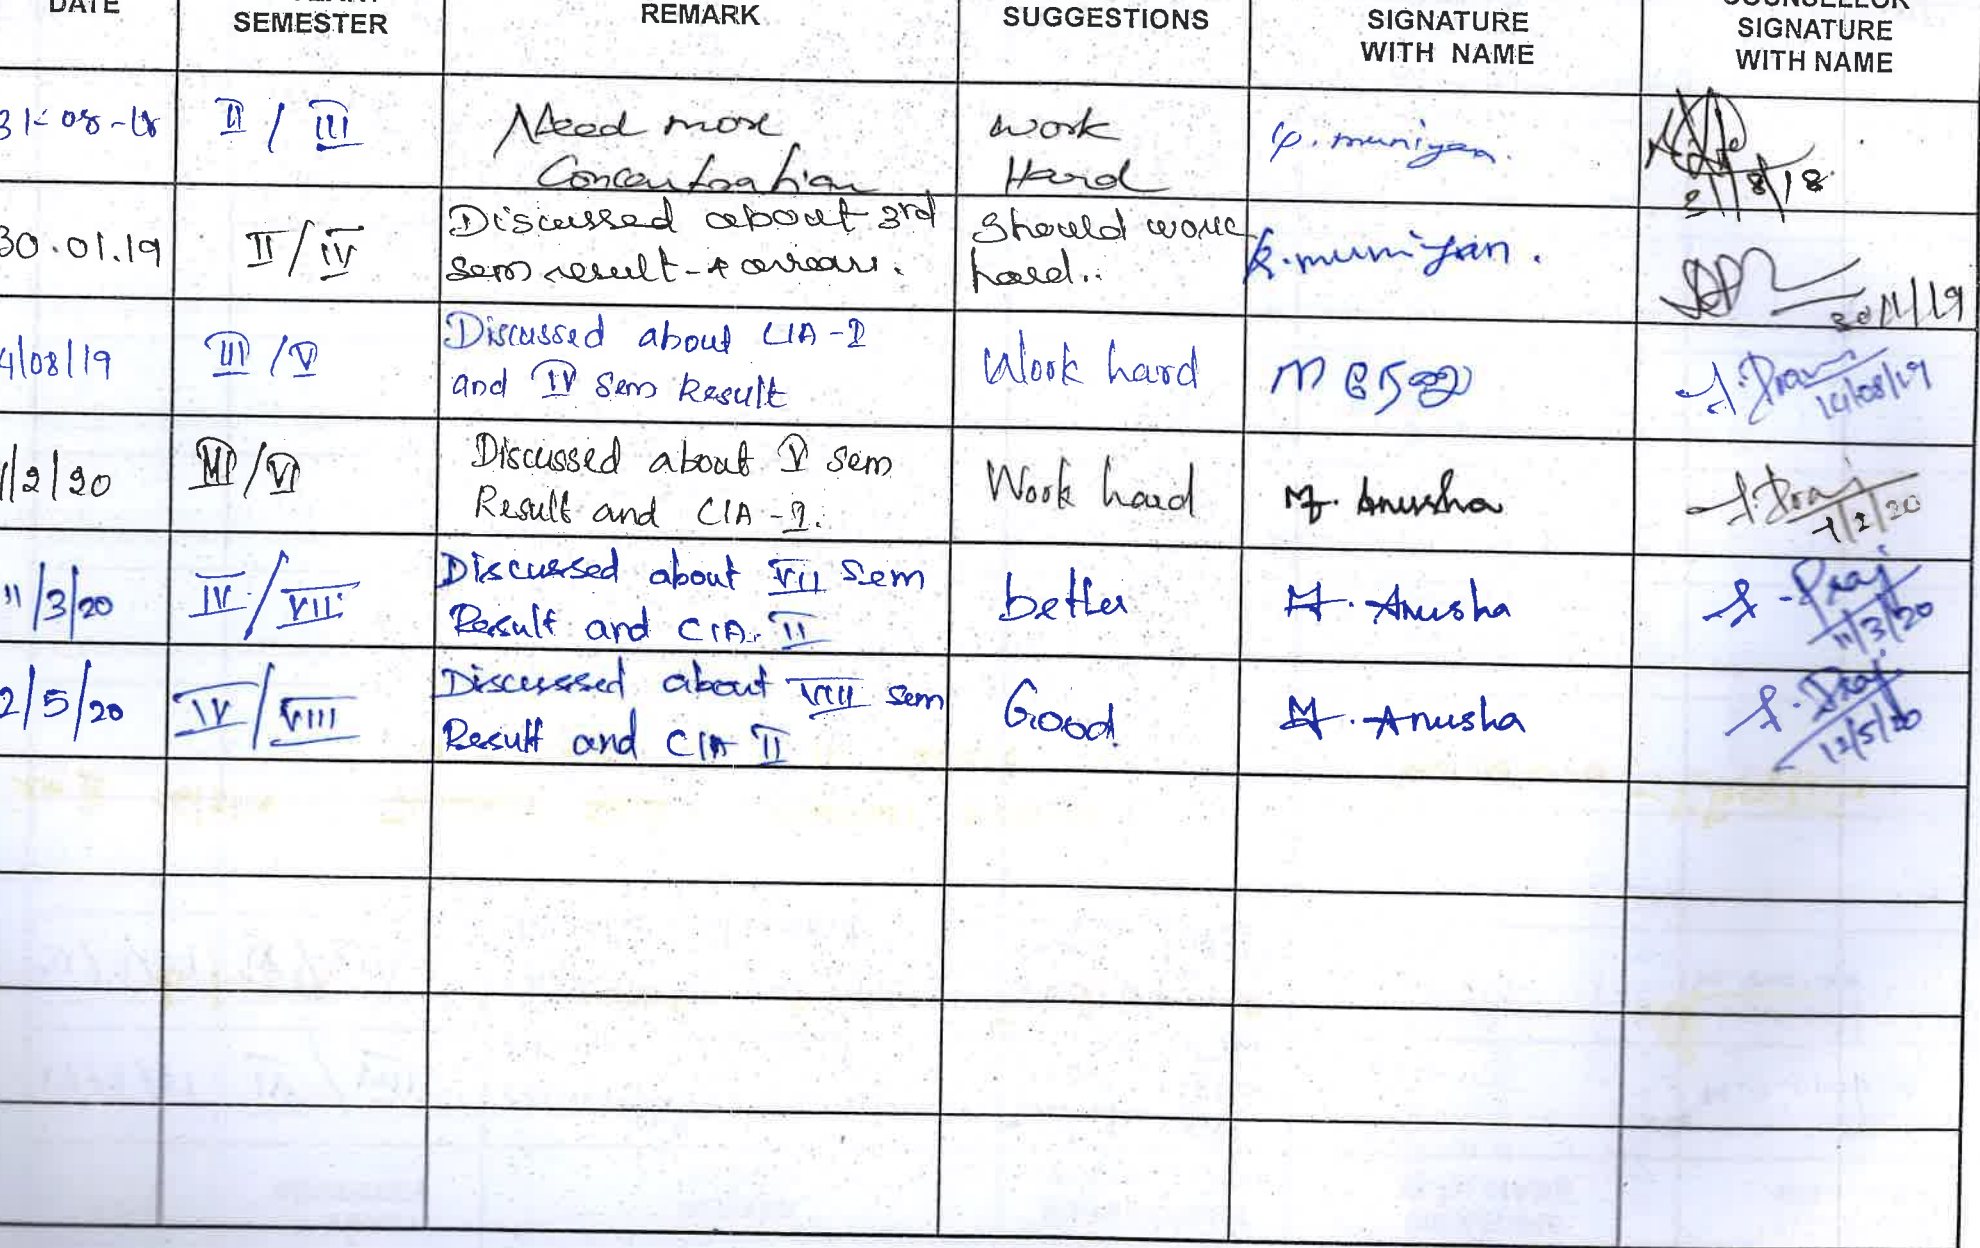 DATE
SEMESTER
REMARK
SUGGESTIONS
SIGNATURE
WITH NAME
COUNSELLOR
SIGNATURE
WITH NAME
31-08-18
II / III
Need more
Concentration
work
Hard
muniyan.
8/18
30.01.19
II/IV
Discussed about 3rd
sem result + arrears.
should work
hard..
k.muniyan.
30/1/19
4/08/19
III /V
Discussed about CIA-I
and IV Sem Result
Work hard
14/08/19
1/2/20
III/VI
Discussed about V sem
Result and CIA-I.
Work hard
M. Anusha
1/2/20
11/3/20
IV/VII
Discussed about VII Sem
Result and CIA. II
better
M. Anusha
11/3/20
2/5/20
IV/VIII
Discusssed about VIII sem
Result and CIA II
Good.
M. Anusha
12/5/20